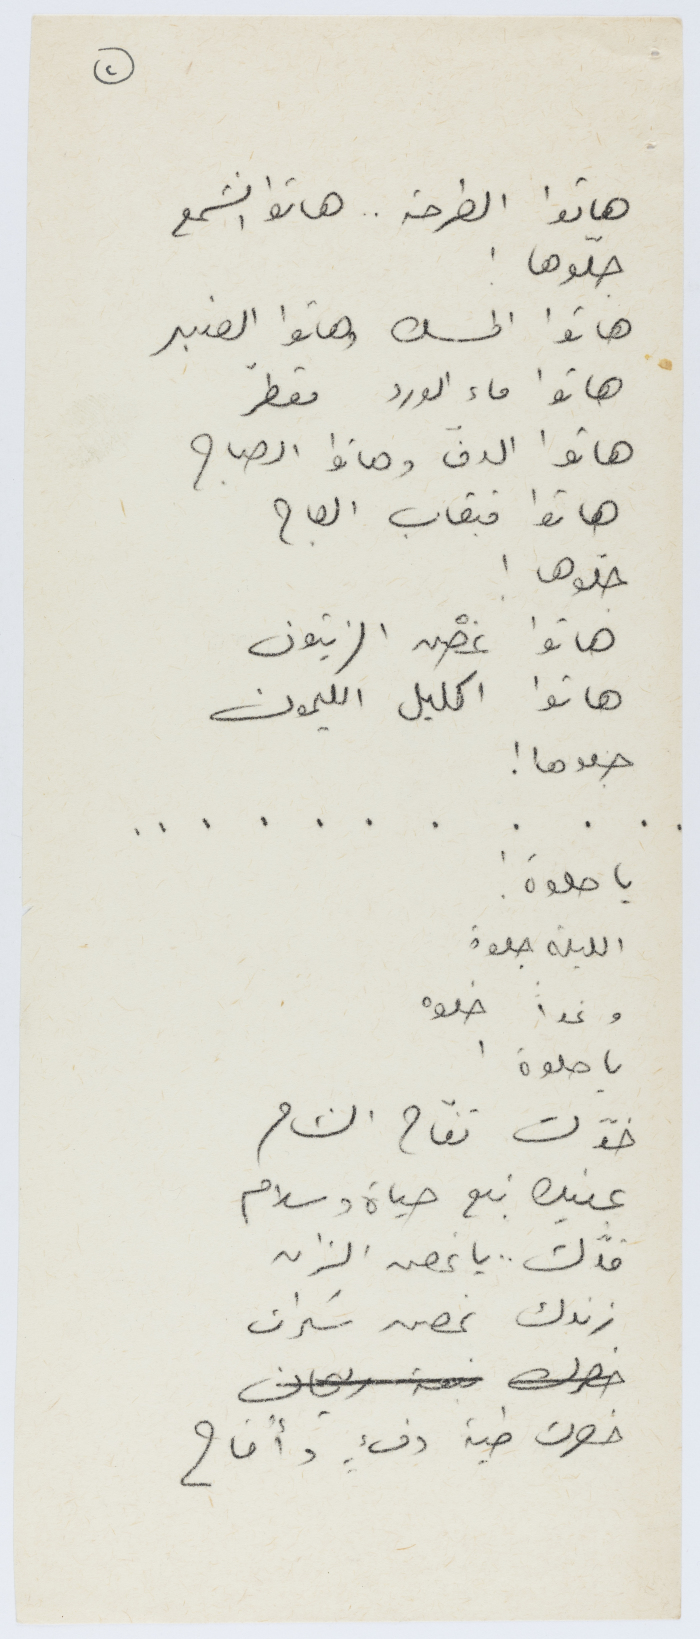 ٢
هاتوا الطرحة .. هاتوا الشمع
جلّوها !
هاتوا المسك وهاتوا العنبر
هاتوا ماء الورد مقطّر
هاتوا الدفّ وهاتوا الصاج
هاتوا قبقاب العاج
جلّوها !
هاتوا غصْن الزيتون
هاتوا اكليل الليمون
جلوها !
. . . . . . . . . . .
يا حلوة !
الليلة جلوة
وغداً خلوه
يا حلوة !
خدّك تفّاح الشام
عينيك نبع حياة وسلام
قدّك .. يا غصن الزان
زندك غصن سكران
خصرك ريحان
خصرك طية دفءٍ و